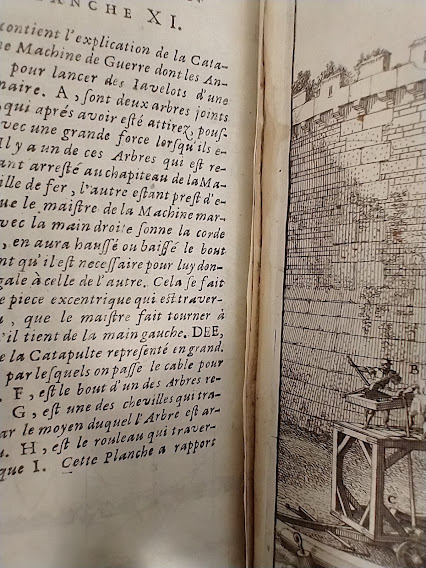 LANCHE XI.
contient l'explication de la Cata-
ne Machine de Guerre dont les An-
pour lancer des Iavelots d'une
naire. A, sont deux arbres joints
qui aprés avoir esté attirez, pous-
vec une grande force lorsqu'ils e-
Il y a un de ces Arbres qui est re-
ant arresté au chapiteau de la Ma-
ille de fer, l'autre estant prest d'e-
que le maistre de la Machine mar-
avec la main droite sonne la corde
, en aura haussé ou baissé le bout
nt qu'il est necessaire pour luy don-
gale à celle de l'autre. Cela se fait
e piece excentrique qui est traver-
u, que le maistre fait tourner à
u'il tient de la main gauche. DEE,
e la Catapulte representé en grand.
par lesquels on passe le cable pour
. F, est le bout d'un des Arbres re-
G, est une des chevilles qui tra-
ar le moyen duquel l'Arbre est ar-
u. H, est le rouleau qui traver-
que I. Cette Planche a rapport
B
C